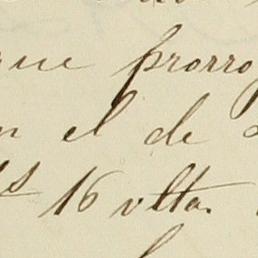 prorro
el de
16 vlta.